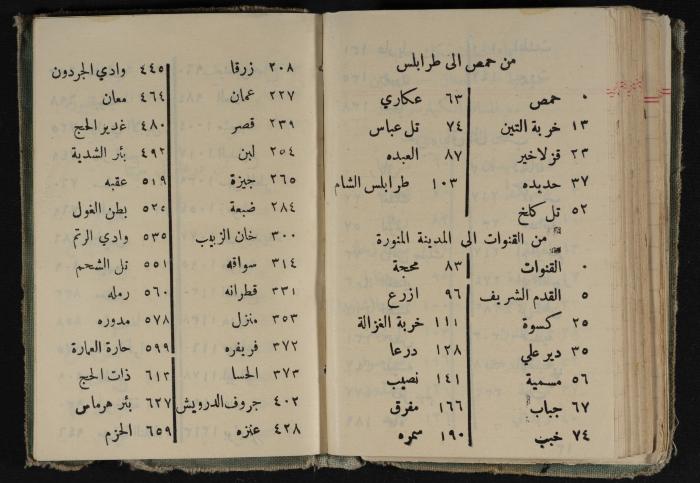 من حمص الى طرابلس
٠ حمص ٦٣ عكاري
١٣ خربة التين ٧٤ تل عباس
٢٣ قزلاخير ٨٧ العبده
٣٧ حديده ١٠٣ طرابلس الشام
٥٢ تل كلخ
من القنوات الى المدينة المنورة
٠ القنوات ٨٣ محجة
٥ القدم الشريف ٩٦ ازرع
٢٥ كسوة ١١١ خربة الغزالة
٣٥ دير علي ١٢٨ درعا
٥٦ مسمية ١٤١ نصيب
٦٧ جباب ١٦٦ مفرق
٧٤ خبب ١٩٠ سمره
٢٠٨ زرقا ٤٤٥ وادي الجردون
٢٢٧ عمان ٤٦٤ معان
٢٣٩ قصر ٤٨٠ غدير الحج
٢٥٤ لبن ٤٩٢ بئر الشدية
٢٦٥ جيزة ٥١٩ عقبه
٢٨٤ ضبعة ٥٢٥ بطن الغول
٣٠٠ خان الزبيب ٥٣٥ وادي الرتم
٣١٤ سواقه ٥٥١ تل الشحم
٣٣١ قطرانه ٥٦٠ رمله
٣٥٣ منزل ٥٧٨ مدوره
٣٧٢ فريفره ٥٩٩ حارة العمارة
٣٧٣ الحسا ٦١٣ ذات الحج
٤٠٢ جروف الدرويش ٦٢٧ بئر هرماس
٤٢٨ عنزه ٦٥٩ الحزم